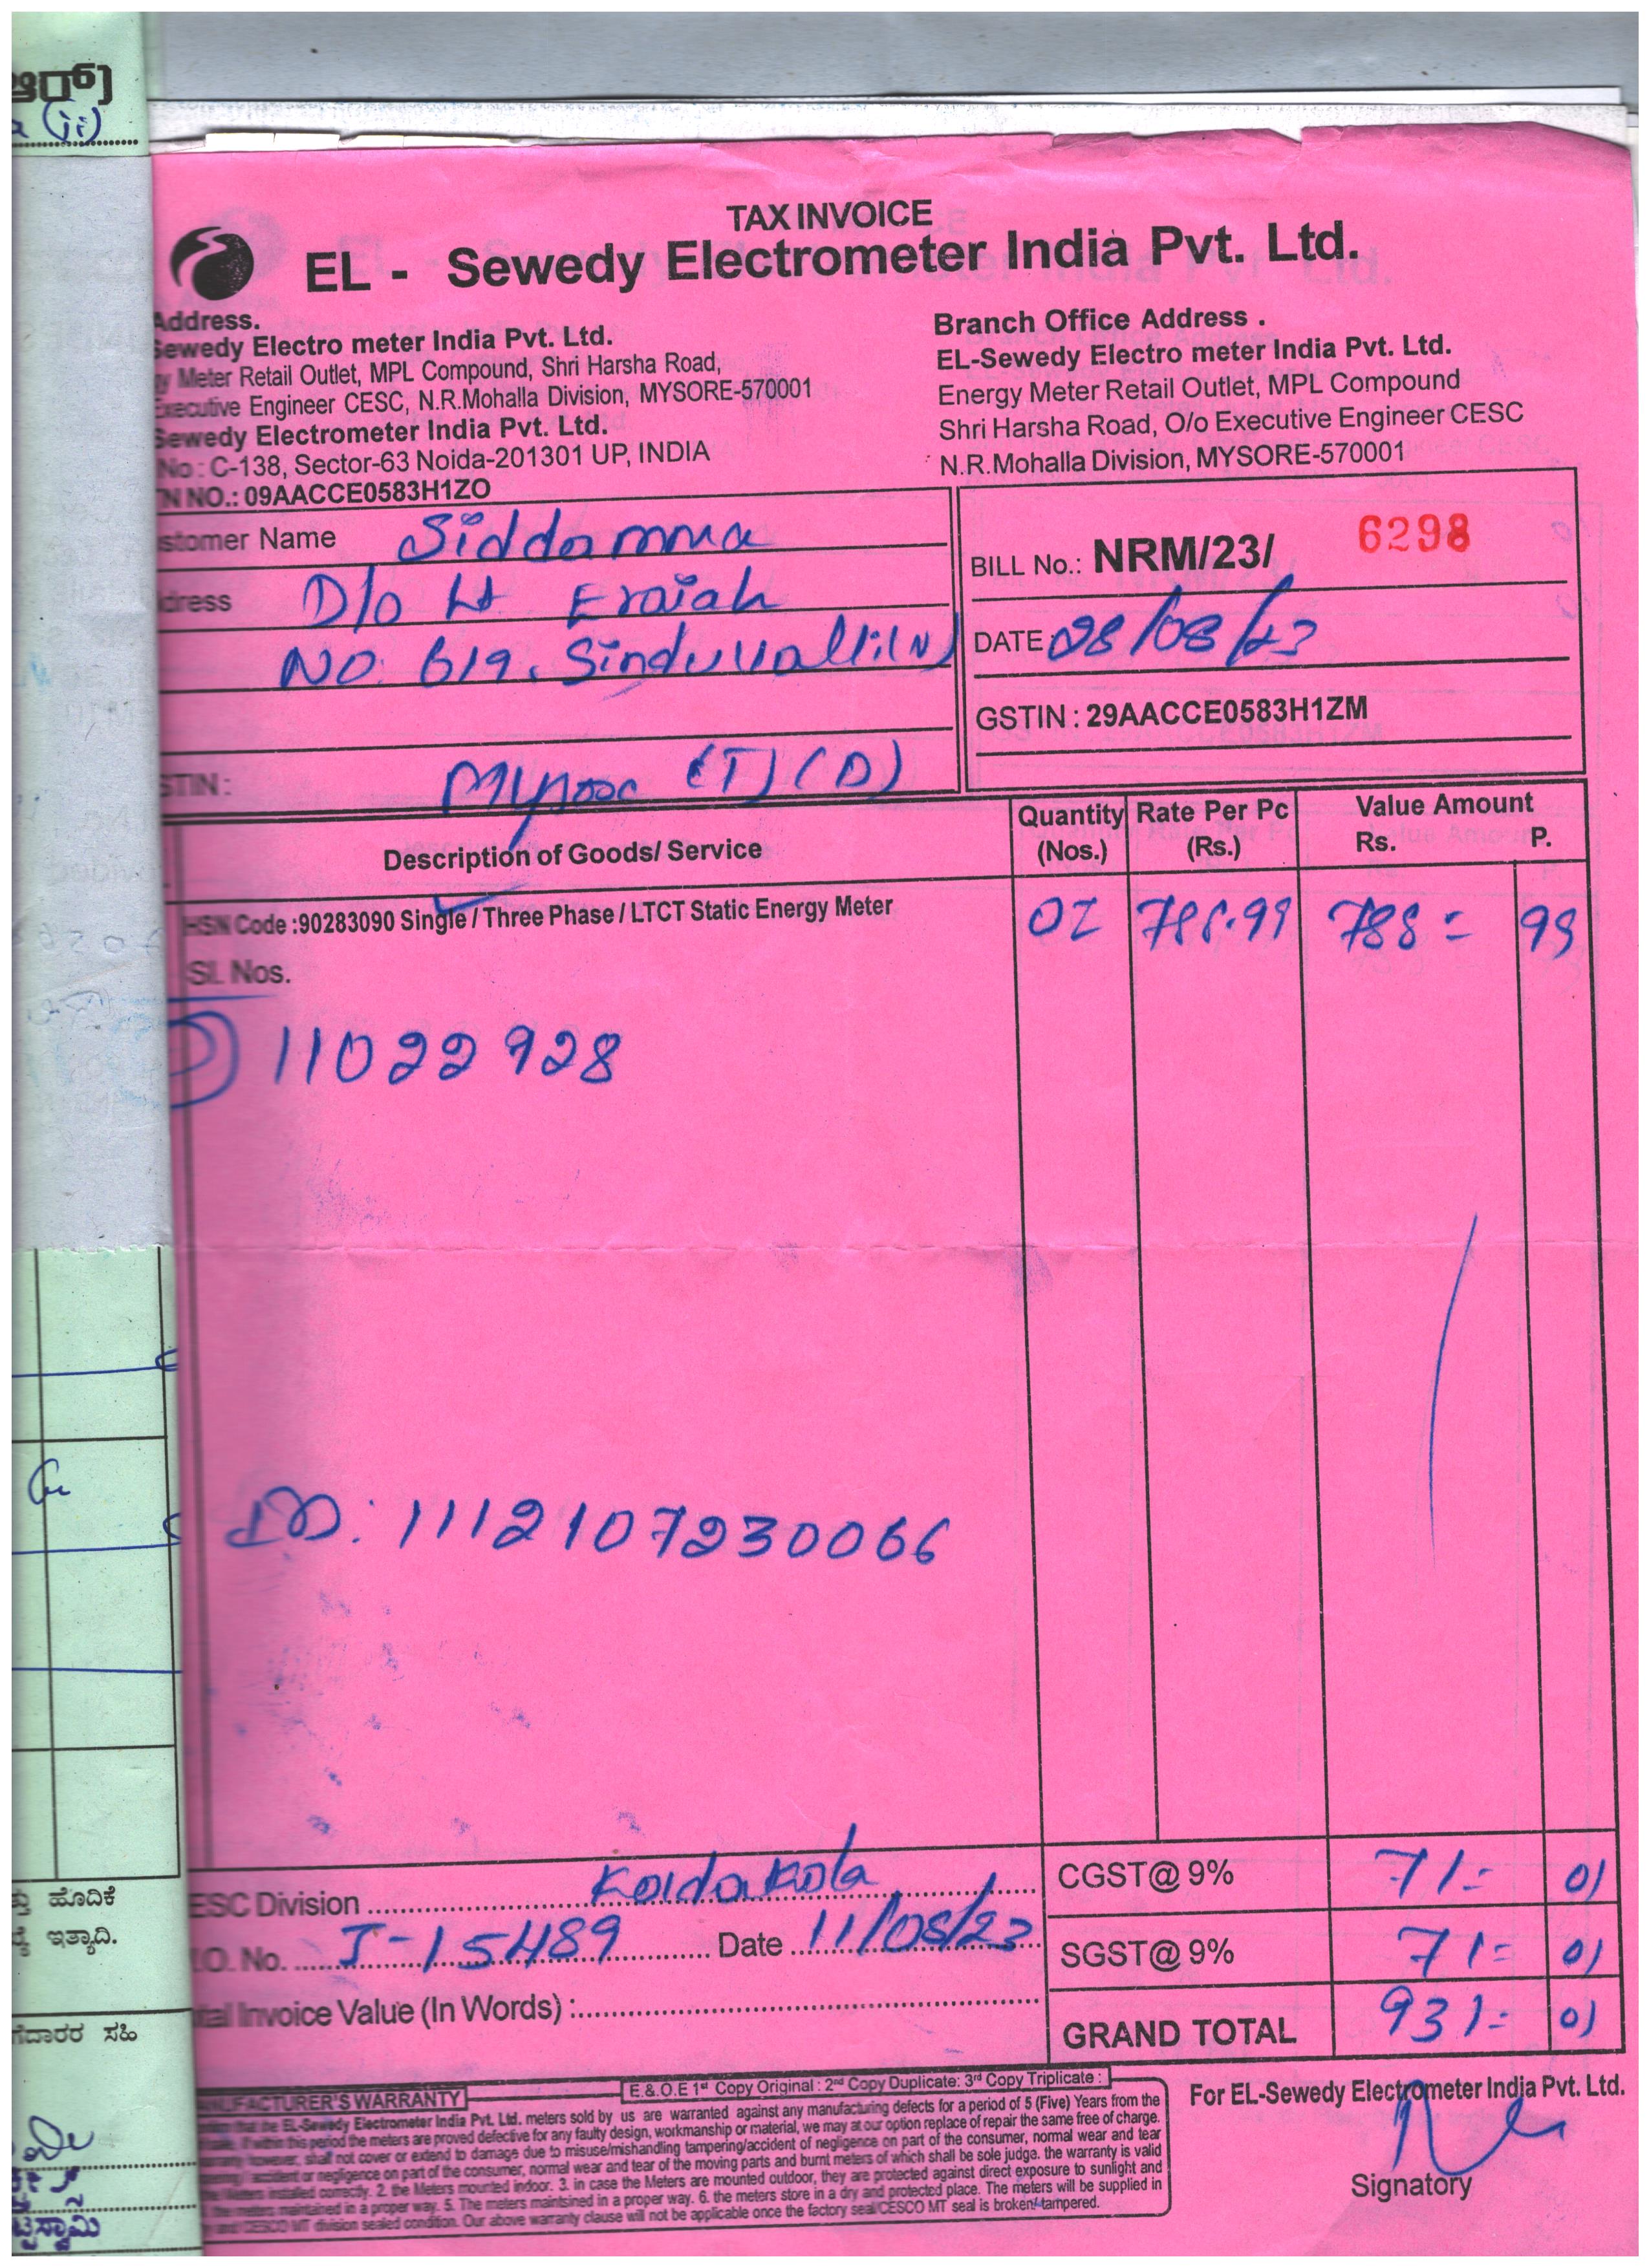 ಆರ್)
a (ii)
TAX INVOICE
EL - Sewedy Electrometer India Pvt. Ltd.
Address.
Sewedy Electro meter India Pvt. Ltd.
gy Meter Retail Outlet, MPL Compound, Shri Harsha Road,
Executive Engineer CESC, N.R.Mohalla Division, MYSORE-570001
Sewedy Electrometer India Pvt. Ltd.
No : C-138, Sector-63 Noida-201301 UP, INDIA
TN NO.: 09AACCE0583H1ZO
Branch Office Address .
EL-Sewedy Electro meter India Pvt. Ltd.
Energy Meter Retail Outlet, MPL Compound
Shri Harsha Road, O/o Executive Engineer CESC
N.R.Mohalla Division, MYSORE-570001
stomer Name Siddamma
dress D/o Lt Eraiah
NO: 619. Sinduvalli(N)
STIN : Mysore (T) (D)
BILL No.: NRM/23/ 6298
DATE: 08/08/23
GSTIN : 29AACCE0583H1ZM
Description of Goods/ Service
Quantity (Nos.)
Rate Per Pc (Rs.)
Value Amount
Rs. P.
HSN Code :90283090 Single / Three Phase / LTCT Static Energy Meter 01 788.99 788= 99
Sl. Nos.
11022928
ID: 1112107230066
ESC Division Kadakola
.O. No. J-15489 Date 11/08/23
tal Invoice Value (In Words) :
CGST@ 9% 71= 01
SGST@ 9% 71= 01
GRAND TOTAL 931= 01
ತ್ತು ಹೊದಿಕೆ
ಇತ್ಯಾದಿ.
ಗೆದಾರರ ಸಹಿ
E.&.O.E 1st Copy Original : 2nd Copy Duplicate: 3rd Copy Triplicate :
ANUFACTURER'S WARRANTY
that the EL-Sewedy Electrometer India Pvt. Ltd. meters sold by us are warranted against any manufacturing defects for a period of 5 (Five) Years from the
sale. If within this period the meters are proved defective for any faulty design, workmanship or material, we may at our option replace of repair the same free of charge.
however, shall not cover or extend to damage due to misuse/mishandling tampering/accident of negligence on part of the consumer, normal wear and tear
accident or negligence on part of the consumer, normal wear and tear of the moving parts and burnt meters of which shall be sole judge. the warranty is valid
the Meters installed correctly. 2. the Meters mounted indoor. 3. in case the Meters are mounted outdoor, they are protected against direct exposure to sunlight and
the meters maintained in a proper way. 5. The meters maintsined in a proper way. 6. the meters store in a dry and protected place. The meters will be supplied in
and CESCO MT division sealed condition. Our above warranty clause will not be applicable once the factory seal/CESCO MT seal is broken/tampered.
For EL-Sewedy Electrometer India Pvt. Ltd.
Signatory